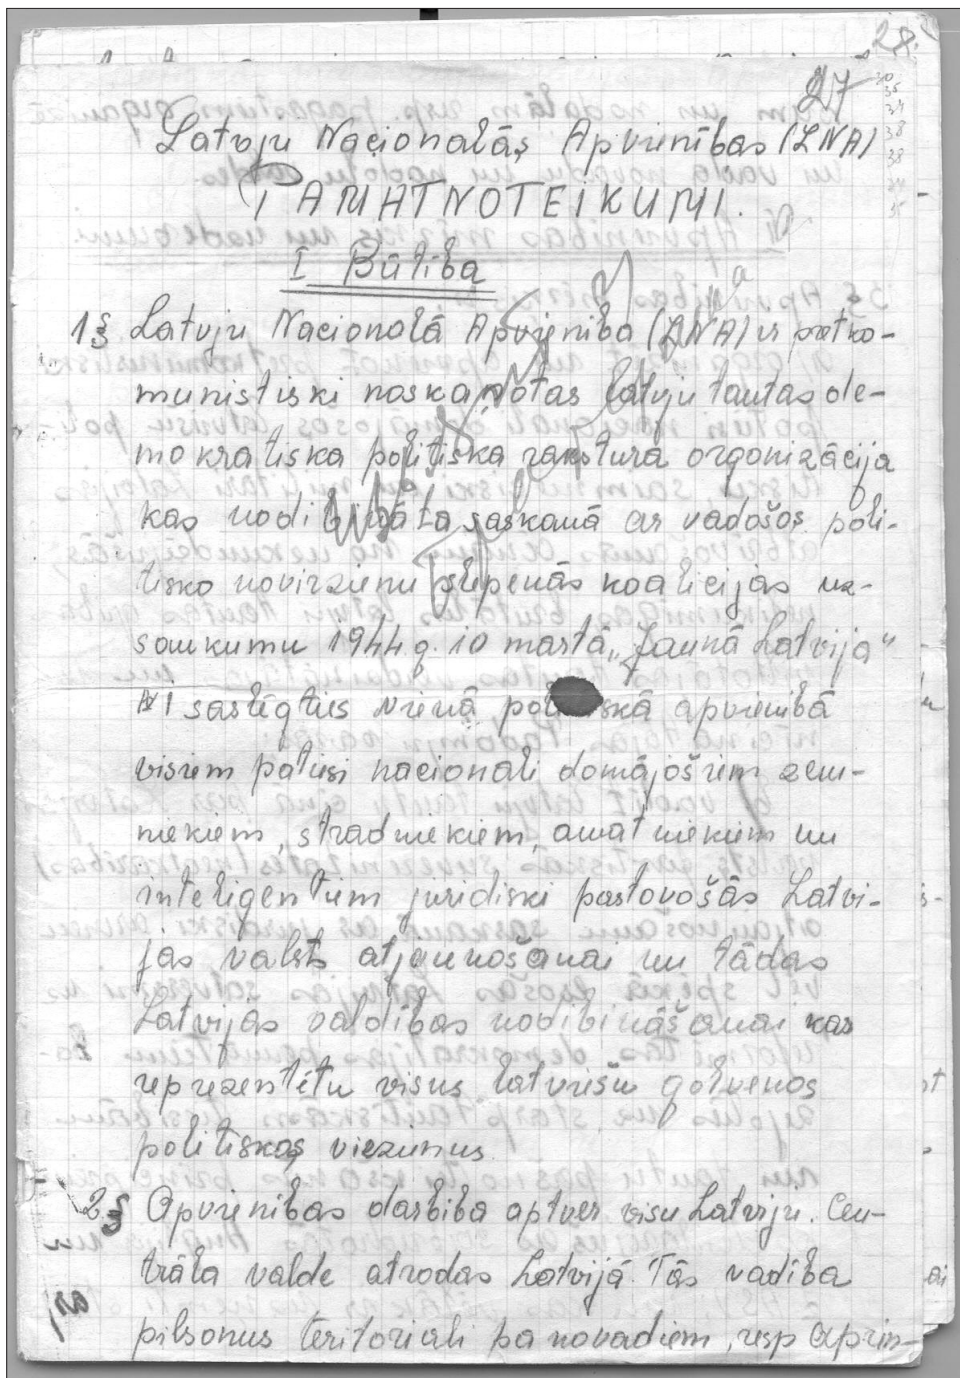 28.
27
Latvju Nacionalās Apvienības (LNA)
PAMATNOTEIKUMI.
I Būtība
1§ Latvju Nacionalā Apvienība (LNA) ir pretko-
munistiski noskaņotas latvju tautas de-
mokratiska politiska rakstura organizācija
kas nodibināta saskaņā ar vadošos poli-
tisko novirzienu slepenās koalicijas uz-
saukumu 1944.g. 10 martā „Jaunā Latvija"
saslēgties vienā politiskā apvienibā
visiem patiesi nacionali domājošiem zem-
niekiem, stradniekiem, amatniekiem un
inteligentiem juridiski pastovošās Latvi-
jas valsts atjaunošanai un tādas
Latvijas valdības nodibināšanai kas
reprezentētu visus latviešu galvenos
politiskos virzienus.
2§ Apvienibas darbiba aptver visu Latviju. Cen-
trāla valde atrodas Latvijā. Tās vadība
pilsonus teritoriali pa novadiem, resp apriņ-